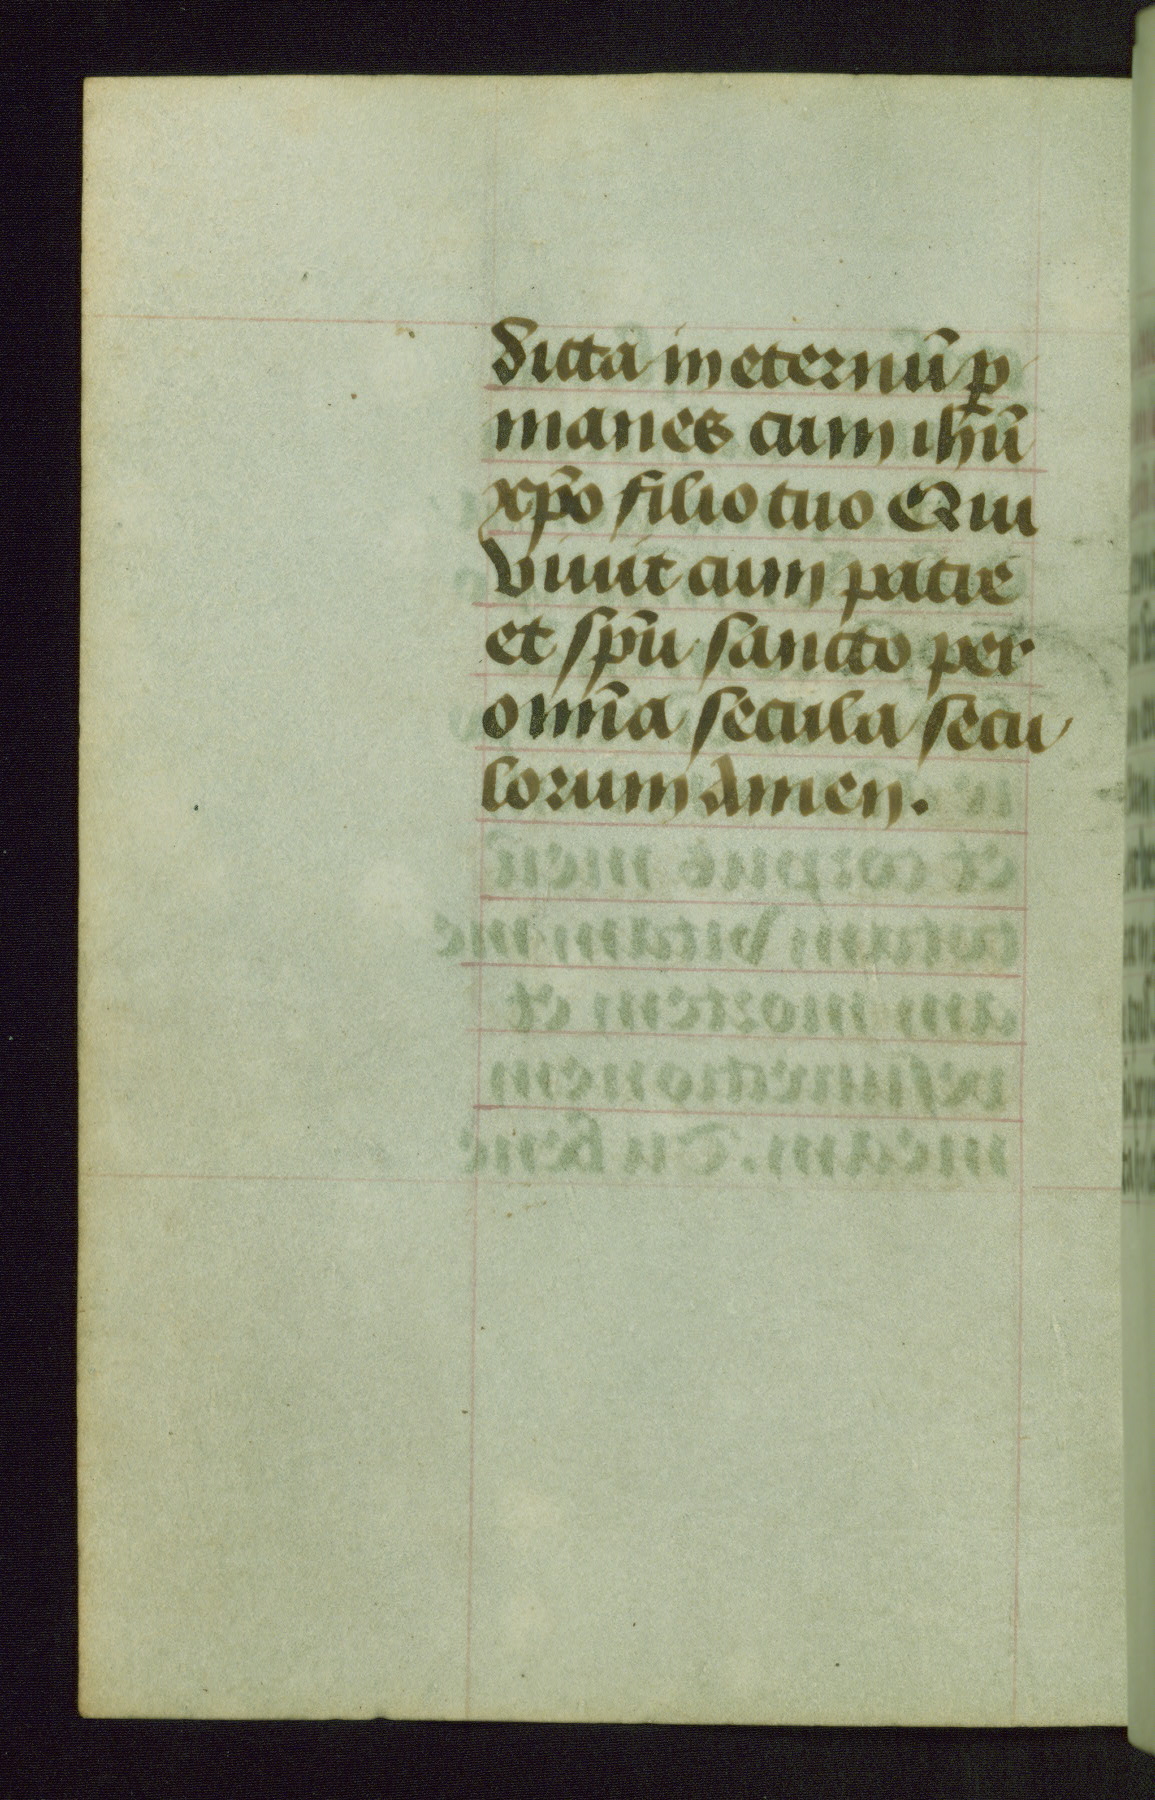 dicta in eternũ ꝑ
manes cum ihũ
xpõ filio tuo Qui
viuit cum patre
et spũ sancto per
omĩa secula secu
lorum Amen.